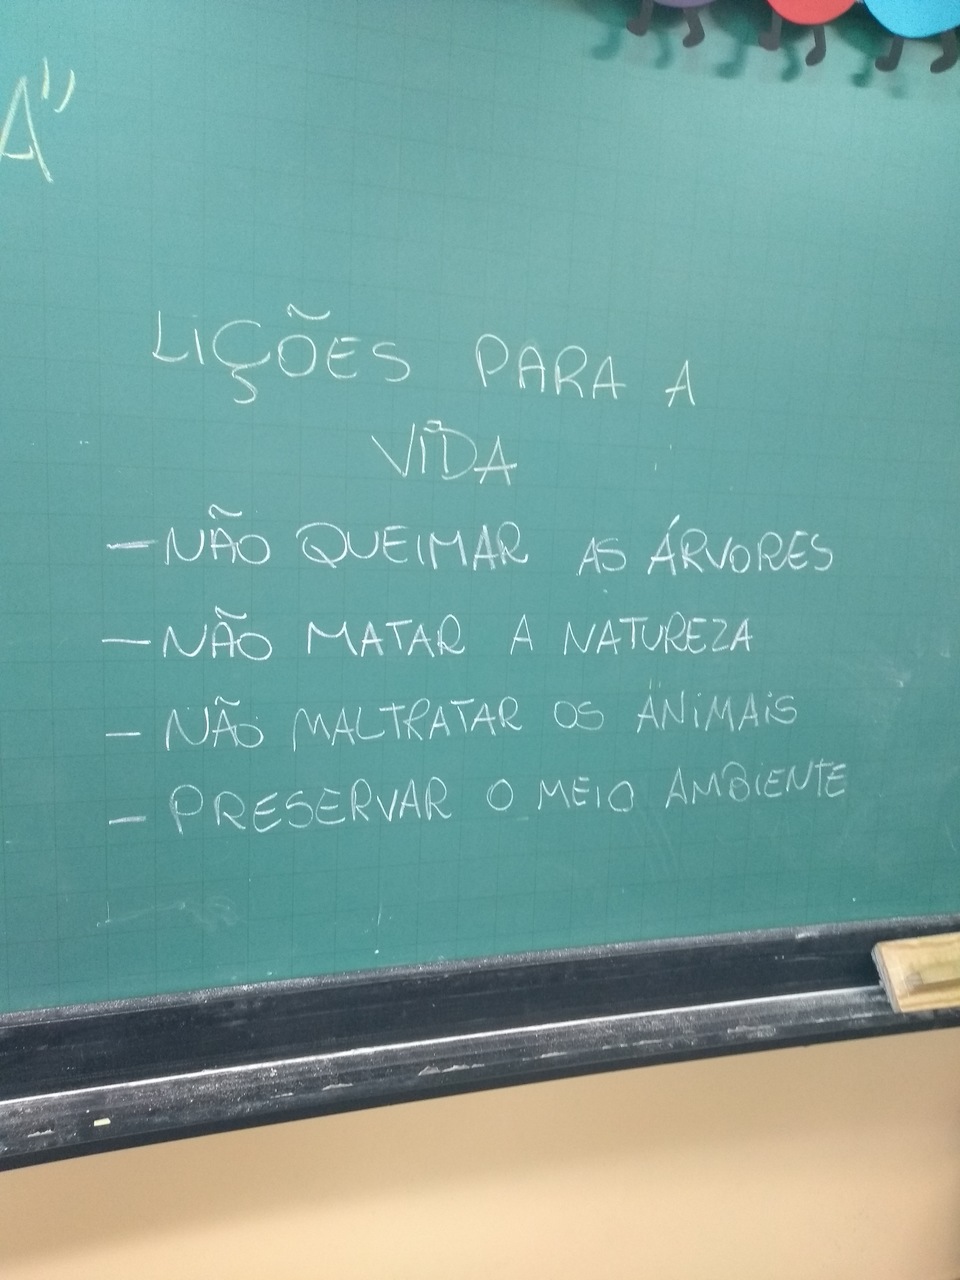 A"
LIÇÕES PARA A
VIDA
- NÃO QUEIMAR AS ÁRVORES
- NÃO MATAR A NATUREZA
- NÃO MALTRATAR OS ANIMAIS
- PRESERVAR O MEIO AMBIENTE